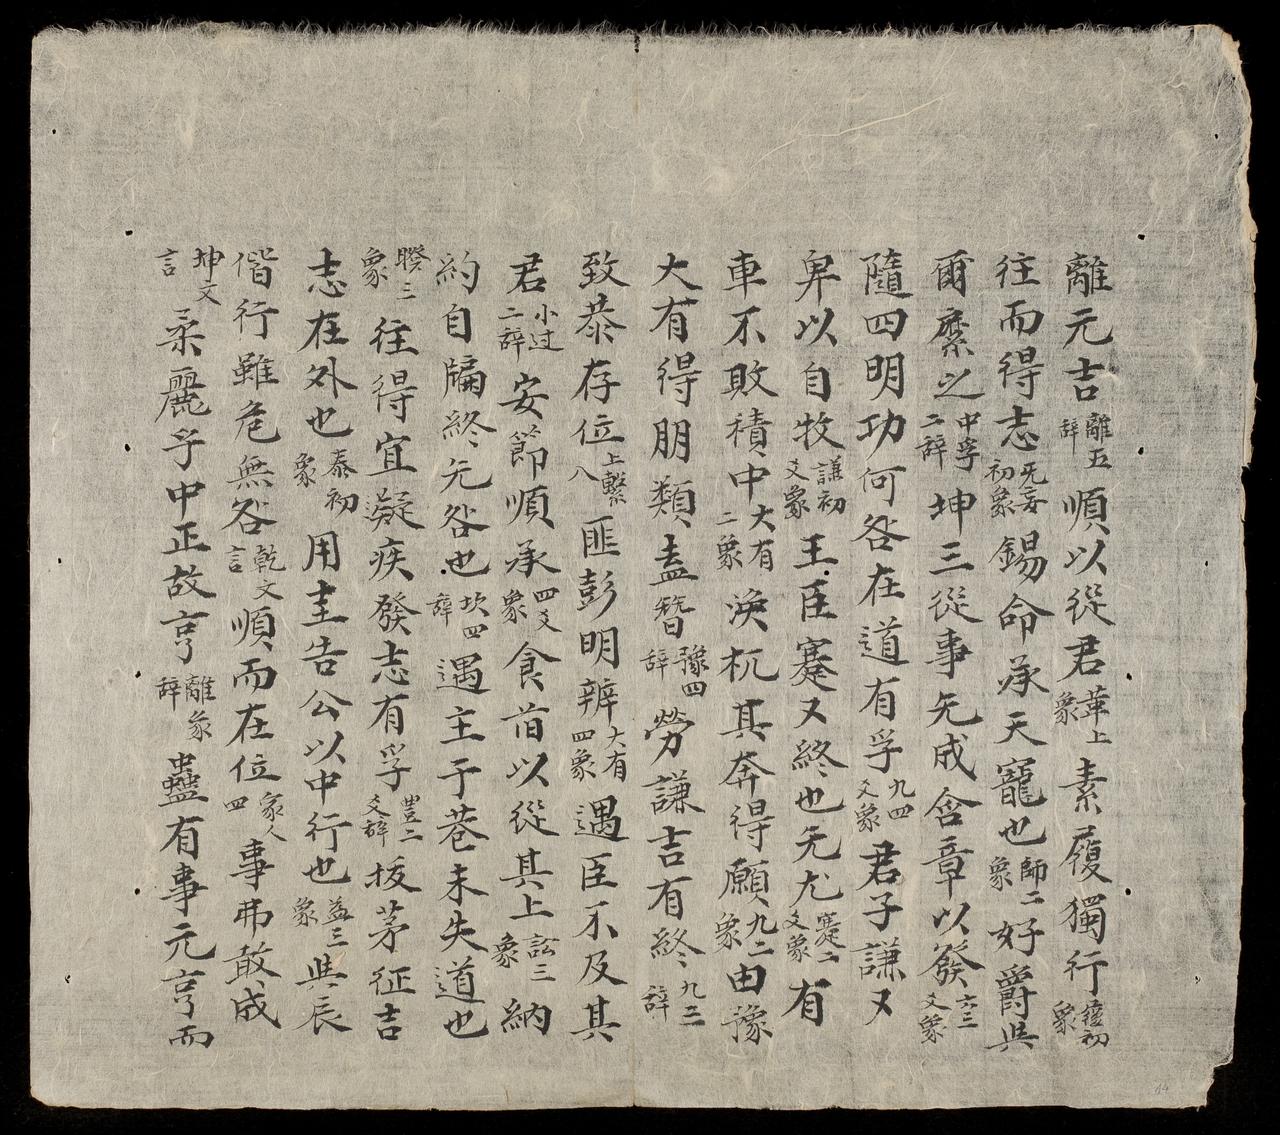 離元吉離五辭順以從君革上象素履獨行履初象
往而得志无妄初象錫命承天寵也師二象好爵與
爾縻之中孚二辭坤三從事无成含章以發六三文象
隨四明功何咎在道有孚九四文象君子謙又
卑以自牧謙初文象王臣蹇又終也无尤蹇二文象有
車不敗積中大有二象渙机其奔得願九二象由豫
大有得朋類盍簪豫四辭勞謙吉有終九三辭
致恭存位上繫八匪彭明辨大有四象遇臣不及其
君小过二辭安節順承四爻象食旧以從其上訟三象納
約自牖終无咎也坎四辭遇主于巷未失道也
睽三象往得宜疑疾發志有孚豊二爻辞拔茅征吉
志在外也泰初象用圭告公以中行也益三象與辰
偕行雖危無咎乾文言順而在位家人四事弗敢成
坤文言柔麗乎中正故亨離彖辭蠱有事元亨而